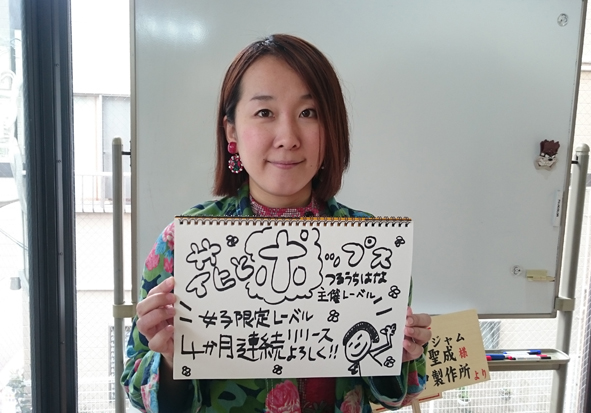 花とポップス
つるうちはな
主催レーベル
女子限定レーベル
4か月連続リリース
よろしく!!
ジャム
聖成様
製作所より